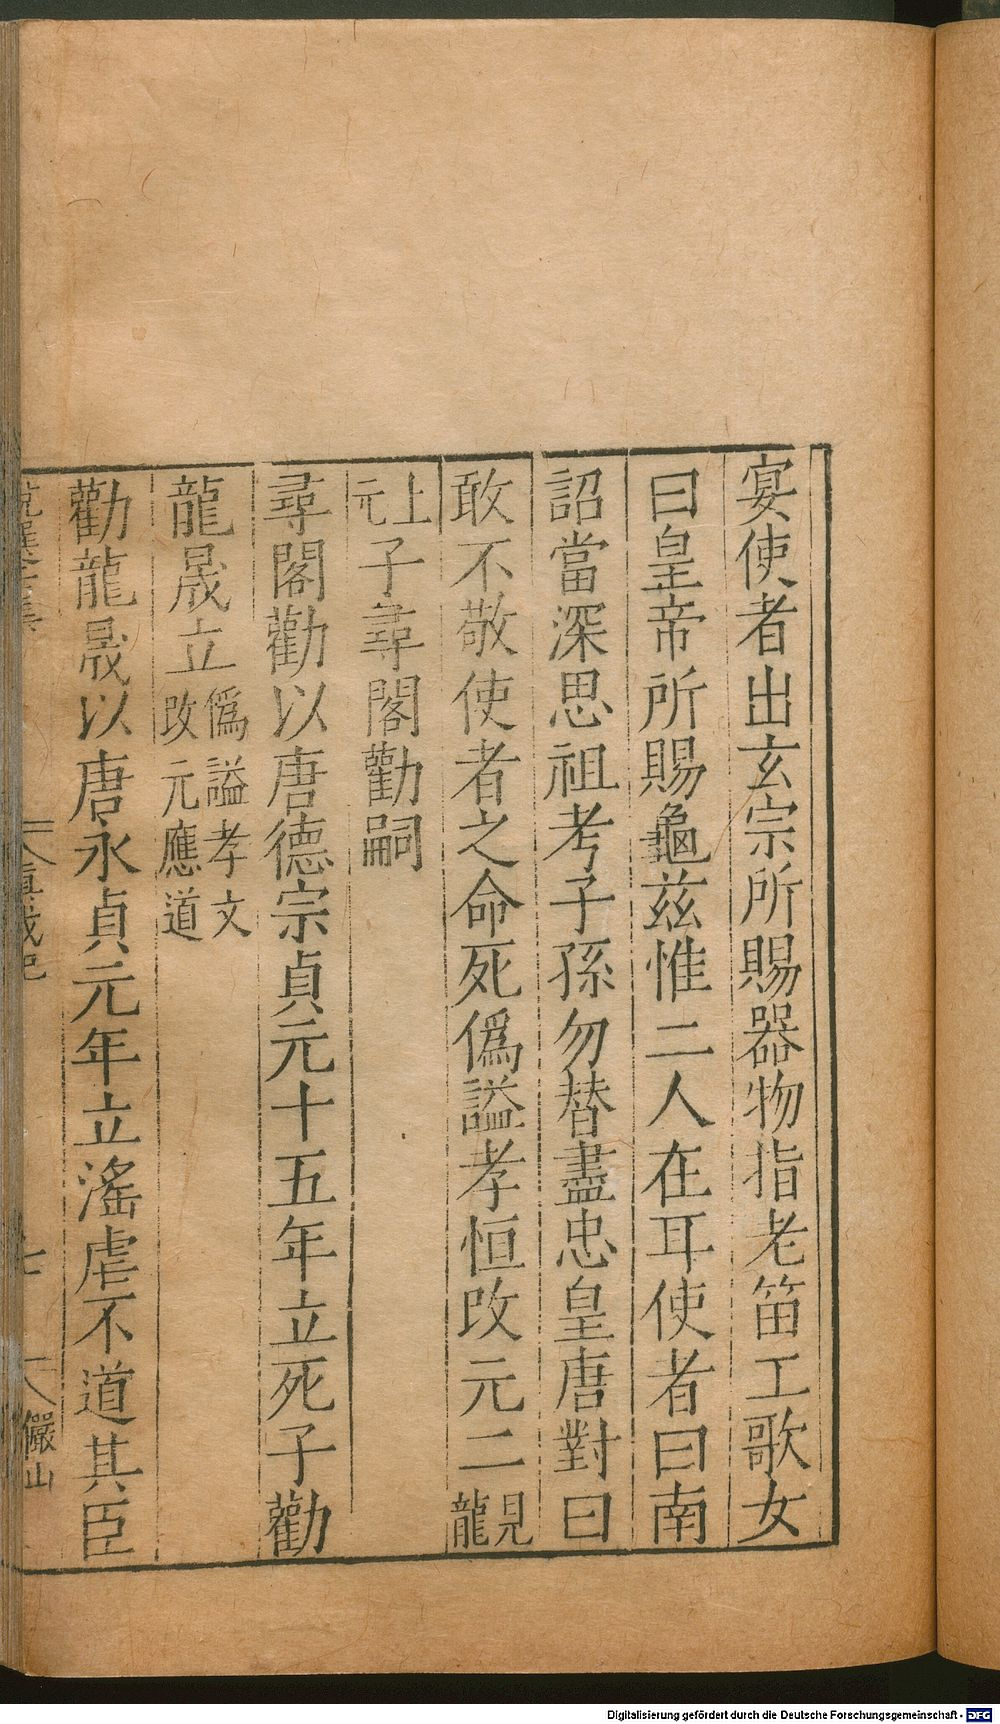 宴使者出玄宗所賜器物指老笛工歌女
曰皇帝所賜龜茲惟二人在耳使者曰南
詔當深思祖考子孫勿替盡忠皇唐對曰
敢不敬使者之命死僞謚孝恒改元二見龍
上元子尋閣勸嗣
尋閣勸以唐德宗貞元十五年立死子勸
龍晟立僞謚孝文改元應道
勸龍晟以唐永貞元年立滛虐不道其臣
七
儼山
Digitalisierung gefördert durch die Deutsche Forschungsgemeinschaft - DFG